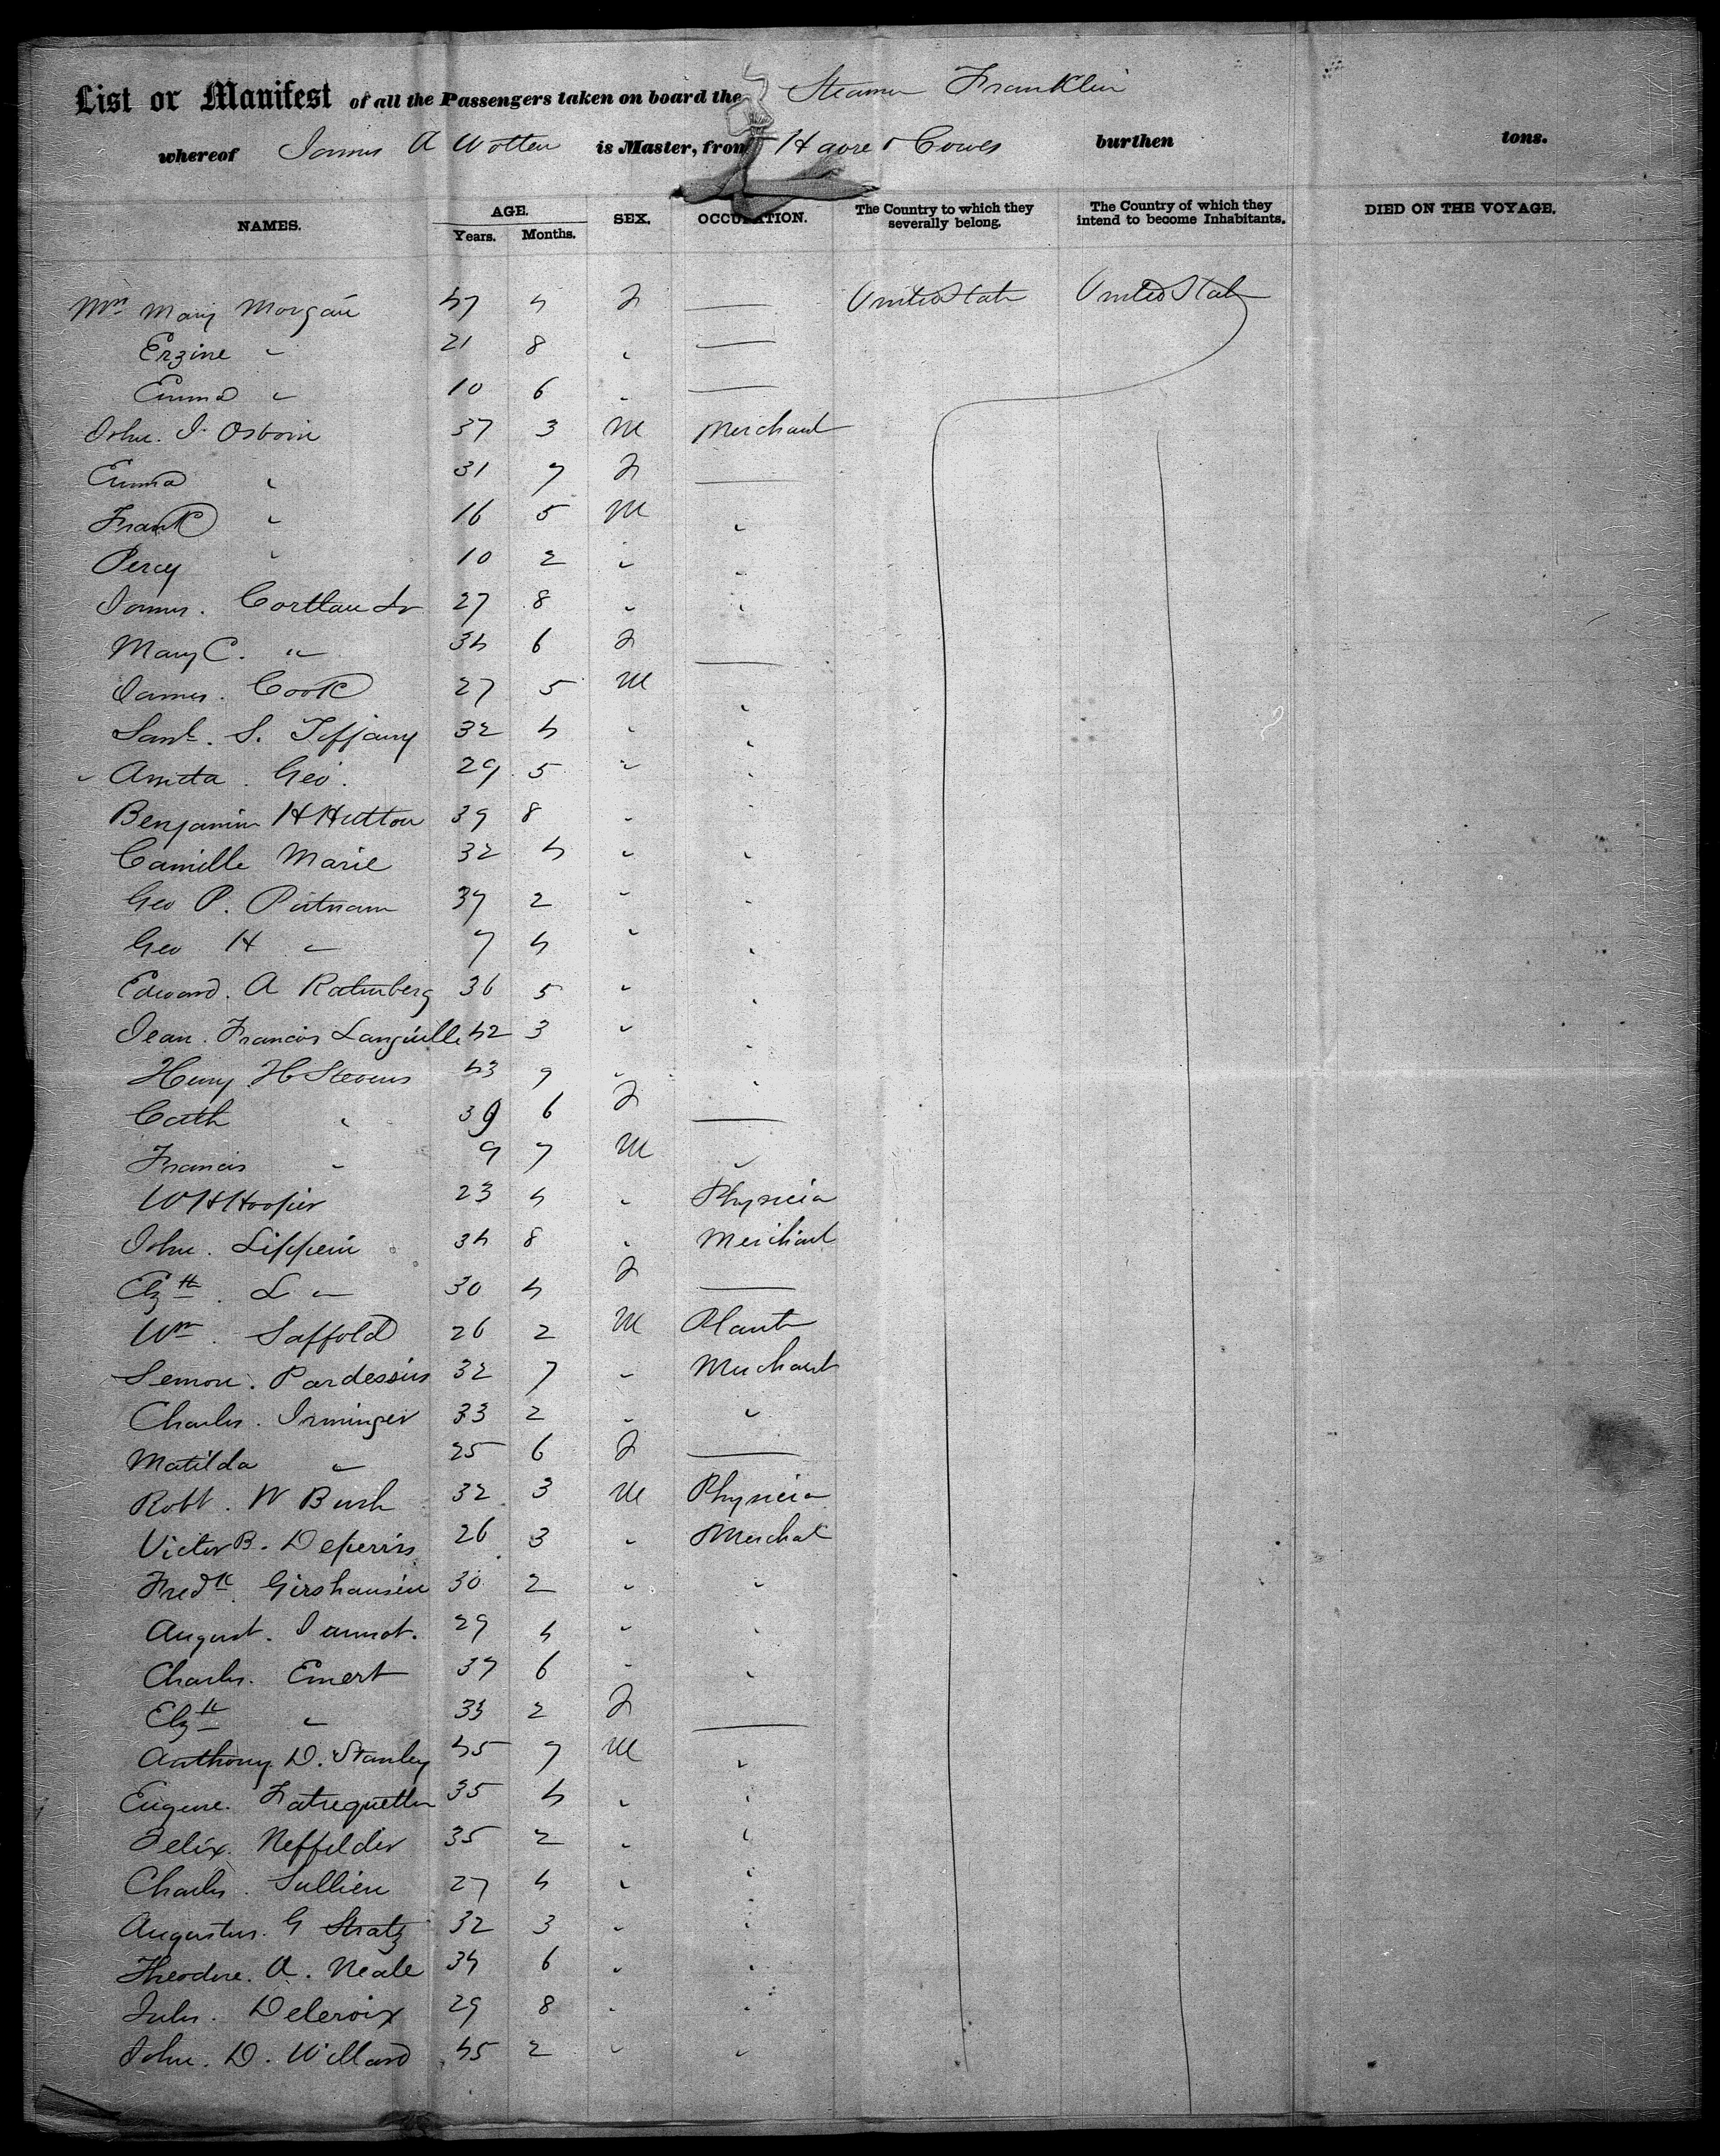 List or Manifest of all the Passengers taken on board the Steamer Franklin
whereof James A Wotten is Master, from Havre & Cowes burthen tons.
NAMES. AGE. Years. Months. SEX. OCCUPATION. The Country to which they severally belong. The Country of which they intend to become Inhabitants. DIED ON THE VOYAGE.
Mrs Mary Morgan 47 4 F — United State United State
Erzine " 21 8 " —
Emma " 10 6 " —
John. J. Osborn 37 3 M Merchant
Emma " 31 7 F —
Frank " 16 5 M "
Percy " 10 2 " "
James. Cortlan Jr 27 8 " "
Mary C. " 34 6 F —
James. Cook 27 5 M "
Saml. S. Tiffany 32 4 " "
Geo. 29 5 " "
Benjamin H Hutton 39 8 " "
Camille Marie 32 4 " "
Geo P. Putnam 37 2 " "
Geo H " 7 4 " "
Edward. A 36 5 " "
Jean. Francois Languille 42 3 " "
Henry H Stevens 43 9 " "
Cath " 39 6 F —
Francis " 9 7 M "
W H Hooper 23 4 " Physicia
John. Lippein 34 8 " Merchant
Elzth. L " 30 4 F —
Wm. Saffold 26 2 M Plant
Semon. Pardessus 32 7 " Merchant
Charles. Irminger 33 2 " "
Matilda " 25 6 F —
Robt. W Bush 32 3 M Physicia
Victor B. Deperris 26 3 " Merchat
Fredk. Girshausen 30 2 " "
August. 29 4 " "
Charles. Emert 37 6 " "
Elzth " 33 2 F —
Anthony D. Stanley 45 7 M "
Eugene. 35 4 " "
Felix. Neffelder 35 2 " "
Charles. Jullien 27 4 " "
Augustus. G Stratz 32 3 " "
Theodore. A. Neale 34 6 " "
Jules. Delcroix 29 8 " "
John. D. Willard 45 2 " "